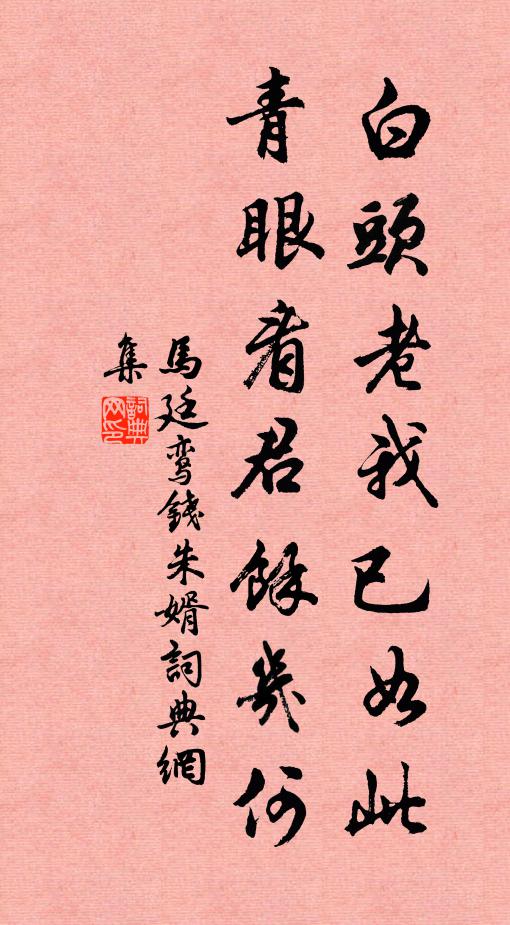 白頭老我已如此
青眼看君餘幾何
馬廷鸾錢朱婿詞典網
集
詞典網印